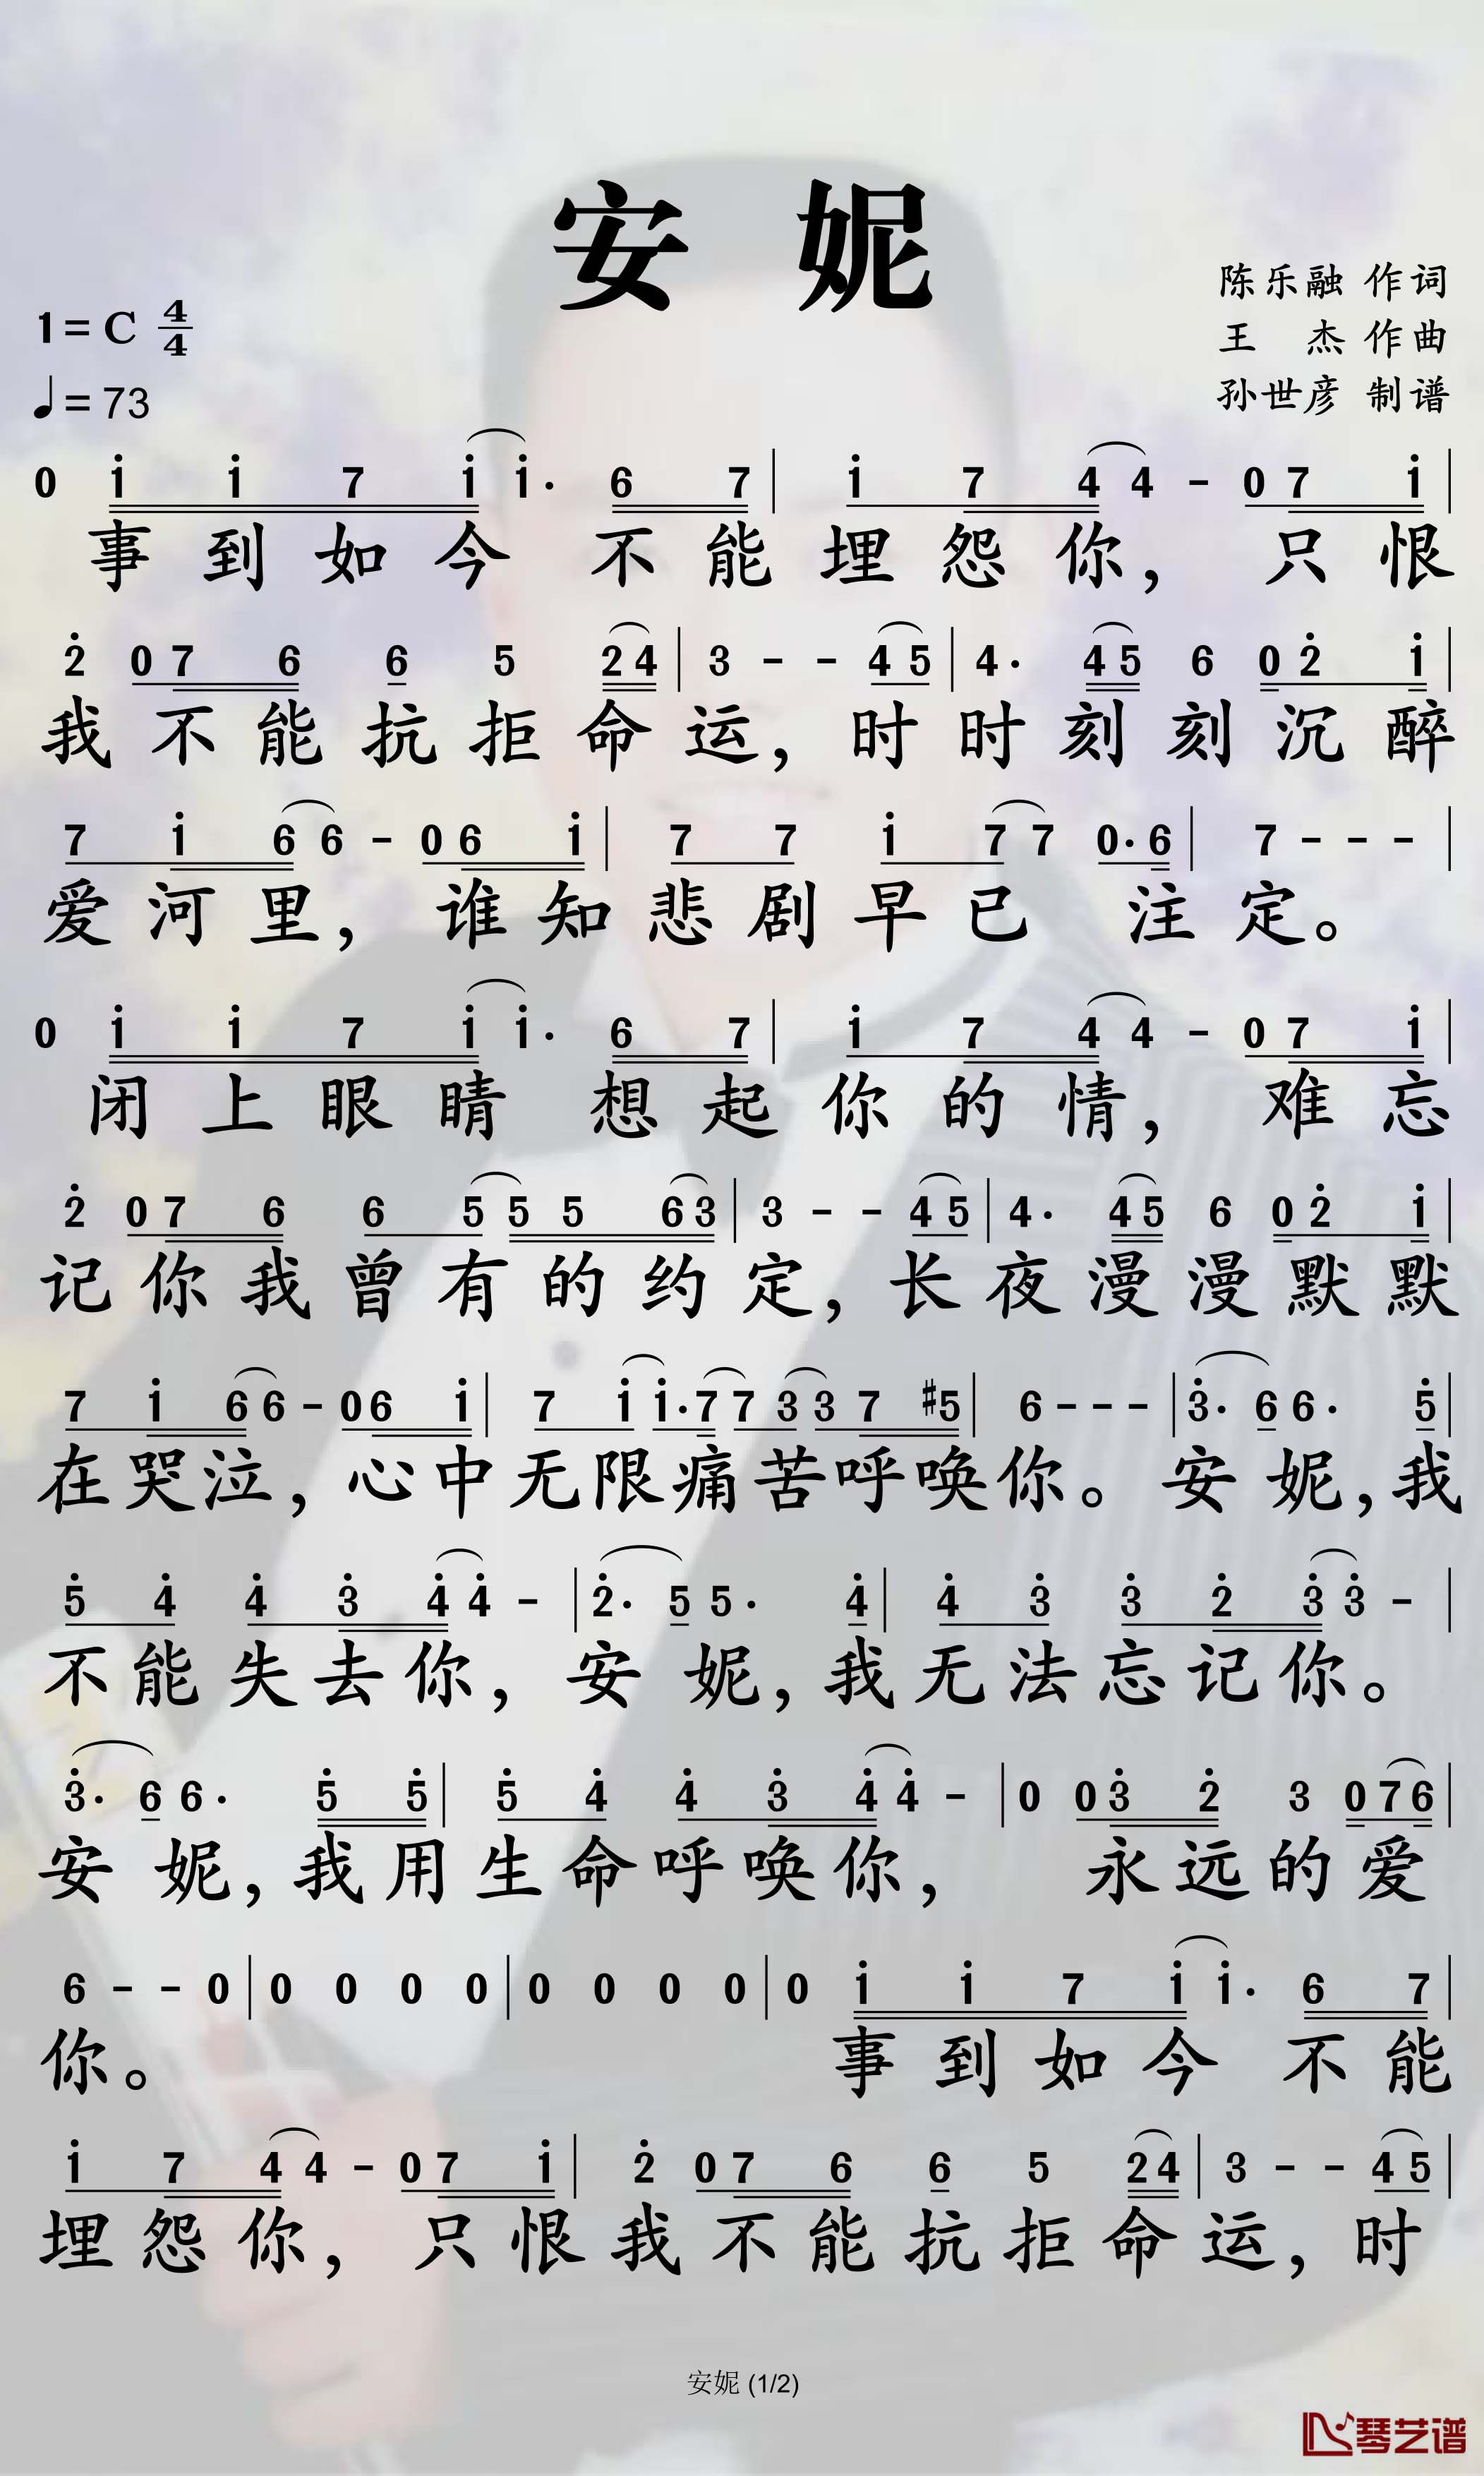 安 妮
陈乐融 作词
1=C 4/4
王 杰 作曲
♩=73
孙世彦 制谱
0 i i 7 i i· 6 7 | i 7 4 4 - 0 7 i |
事到如今 不能埋怨你，只恨
2̇ 0 7 6 6 5 2 4 | 3 - - 4 5 | 4· 4 5 6 0 2̇ i |
我不能抗拒命运，时时刻刻沉醉
7 i 6 6 - 0 6 i | 7 7 i 7 7 0· 6 | 7 - - - |
爱河里，谁知悲剧早已 注定。
0 i i 7 i i· 6 7 | i 7 4 4 - 0 7 i |
闭上眼睛 想起你的情，难忘
2̇ 0 7 6 6 5 5 5 6 3 | 3 - - 4 5 | 4· 4 5 6 0 2̇ i |
记你我曾有的约定，长夜漫漫默默
7 i 6 6 - 0 6 i | 7 i i· 7 7 3 3 7 #5 | 6 - - - | 3̇· 6 6· 5̇ |
在哭泣，心中无限痛苦呼唤你。安妮，我
5̇ 4̇ 4̇ 3̇ 4̇ 4̇ - | 2̇· 5̇ 5· 4̇ | 4̇ 3̇ 3̇ 2̇ 3̇ 3̇ - |
不能失去你，安妮，我无法忘记你。
3̇· 6 6· 5̇ 5̇ | 5̇ 4̇ 4̇ 3̇ 4̇ 4̇ - | 0 0 3̇ 2̇ 3 0 7 6 |
安妮，我用生命呼唤你，永远的爱
6 - - 0 | 0 0 0 0 | 0 0 0 0 | 0 i i 7 i i· 6 7 |
你。 事到如今 不能
i 7 4 4 - 0 7 i | 2̇ 0 7 6 6 5 2 4 | 3 - - 4 5 |
埋怨你，只恨我不能抗拒命运，时
安妮 (1/2)
琴艺谱